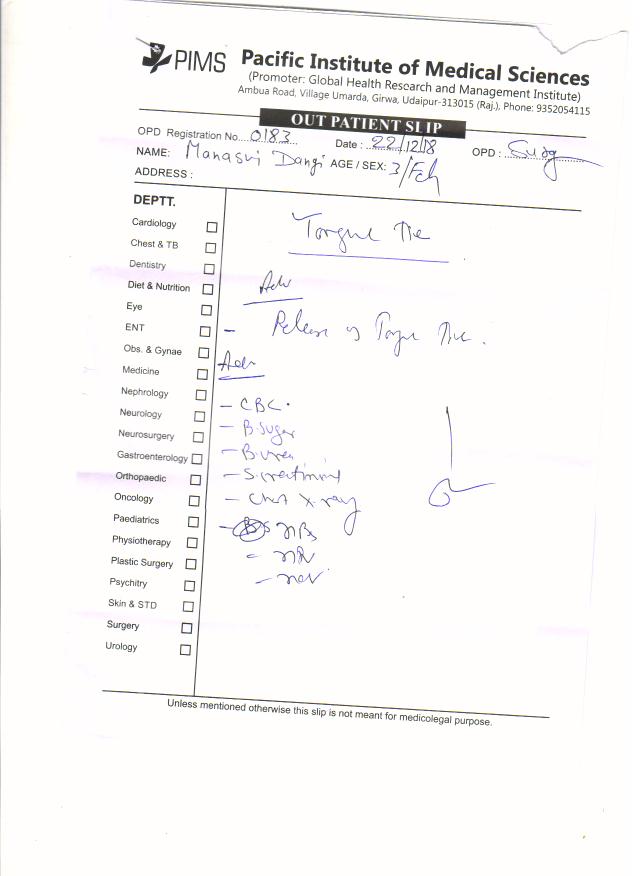 PIMS Pacific Institute of Medical Sciences
(Promoter: Global Health Research and Management Institute)
Ambua Road, Village Umarda, Girwa, Udaipur-313015 (Raj.), Phone: 9352054115
OUT PATIENT SLIP
OPD Registration No. 0183 Date : 22/12/18 OPD :
NAME: Manasvi Dangi AGE / SEX: 3/
ADDRESS :
DEPTT.
Cardiology
Chest & TB
Dentistry
Diet & Nutrition
Eye
ENT
Obs. & Gynae
Medicine
Nephrology
Neurology
Neurosurgery
Gastroenterology
Orthopaedic
Oncology
Paediatrics
Physiotherapy
Plastic Surgery
Psychitry
Skin & STD
Surgery
Urology
Tongue Tie
Adv
- Release of Tongue Tie.
Adv
- CBC.
- B. Sugar
- B. Urea
- S. creatinine
- Chest X-ray
Unless mentioned otherwise this slip is not meant for medicolegal purpose.